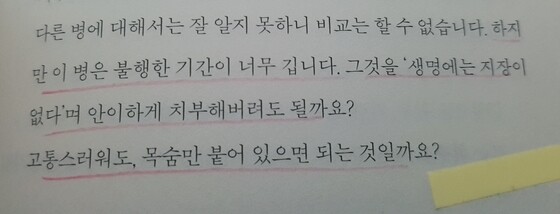 다른 병에 대해서는 잘 알지 못하니 비교는 할 수 없습니다. 하지
만 이 병은 불행한 기간이 너무 깁니다. 그것을 ‘생명에는 지장이
없다’며 안이하게 치부해버려도 될까요?
고통스러워도, 목숨만 붙어 있으면 되는 것일까요?